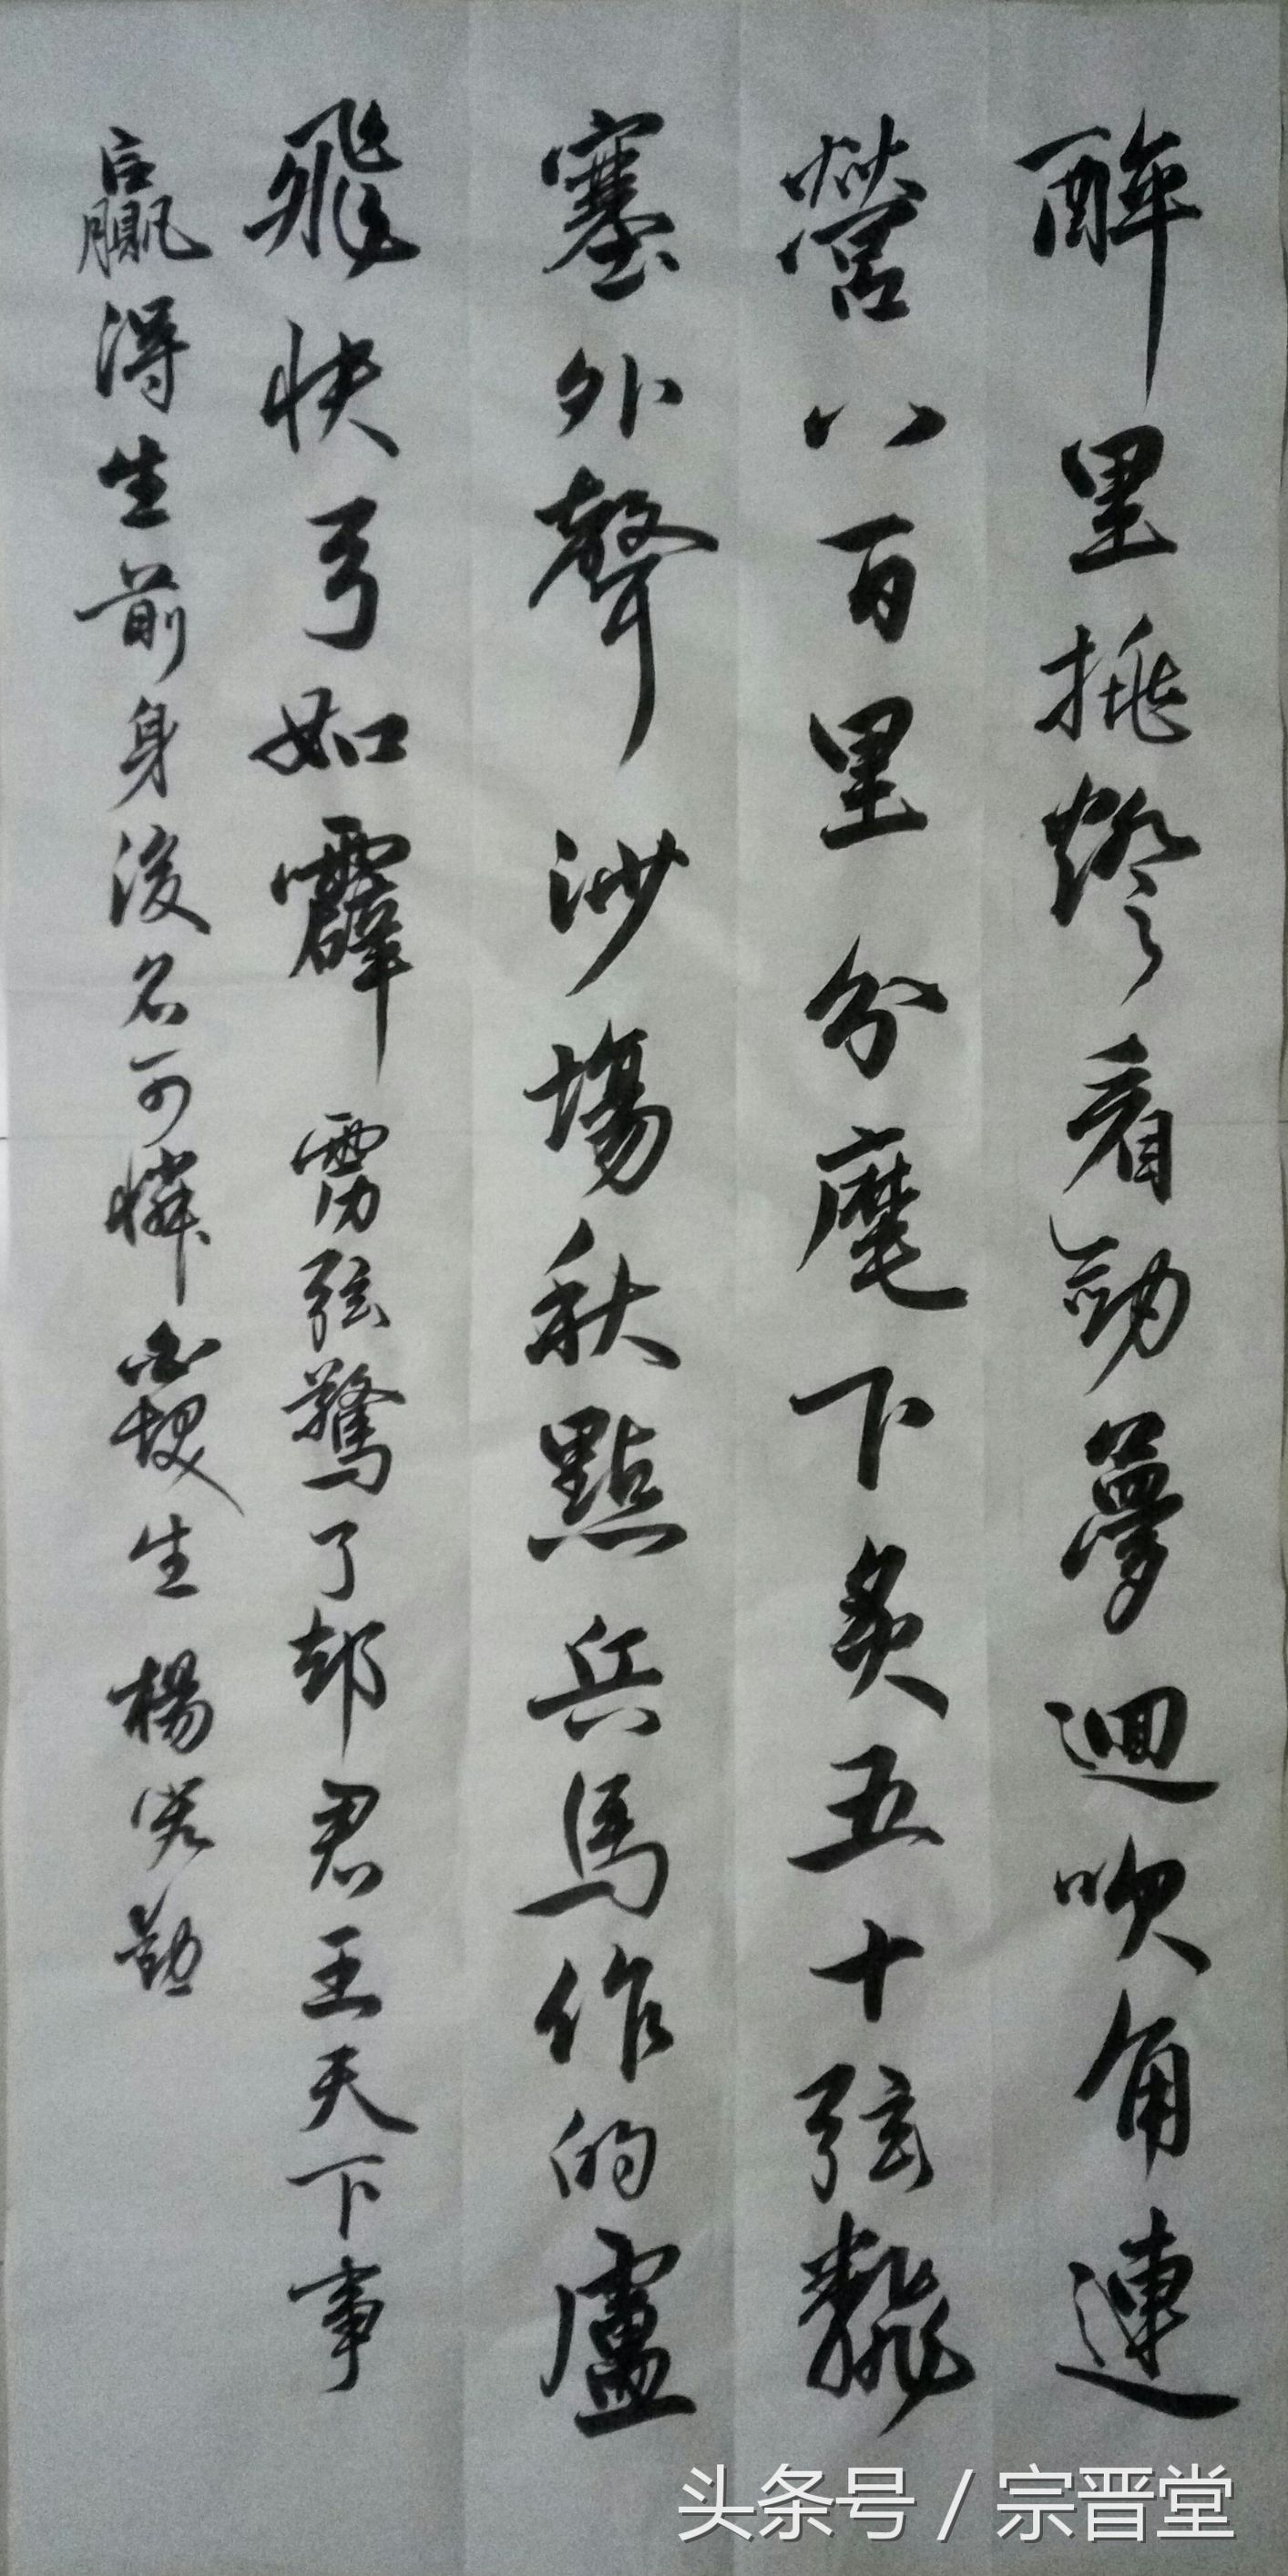 醉里挑燈看劍夢迴吹角連
營八百里分麾下炙五十弦飜
塞外聲沙場秋點兵馬作的盧
飛快弓如霹雳弦驚了却君王天下事
贏得生前身後名可憐白髮生 楊
头条号 / 宗晋堂